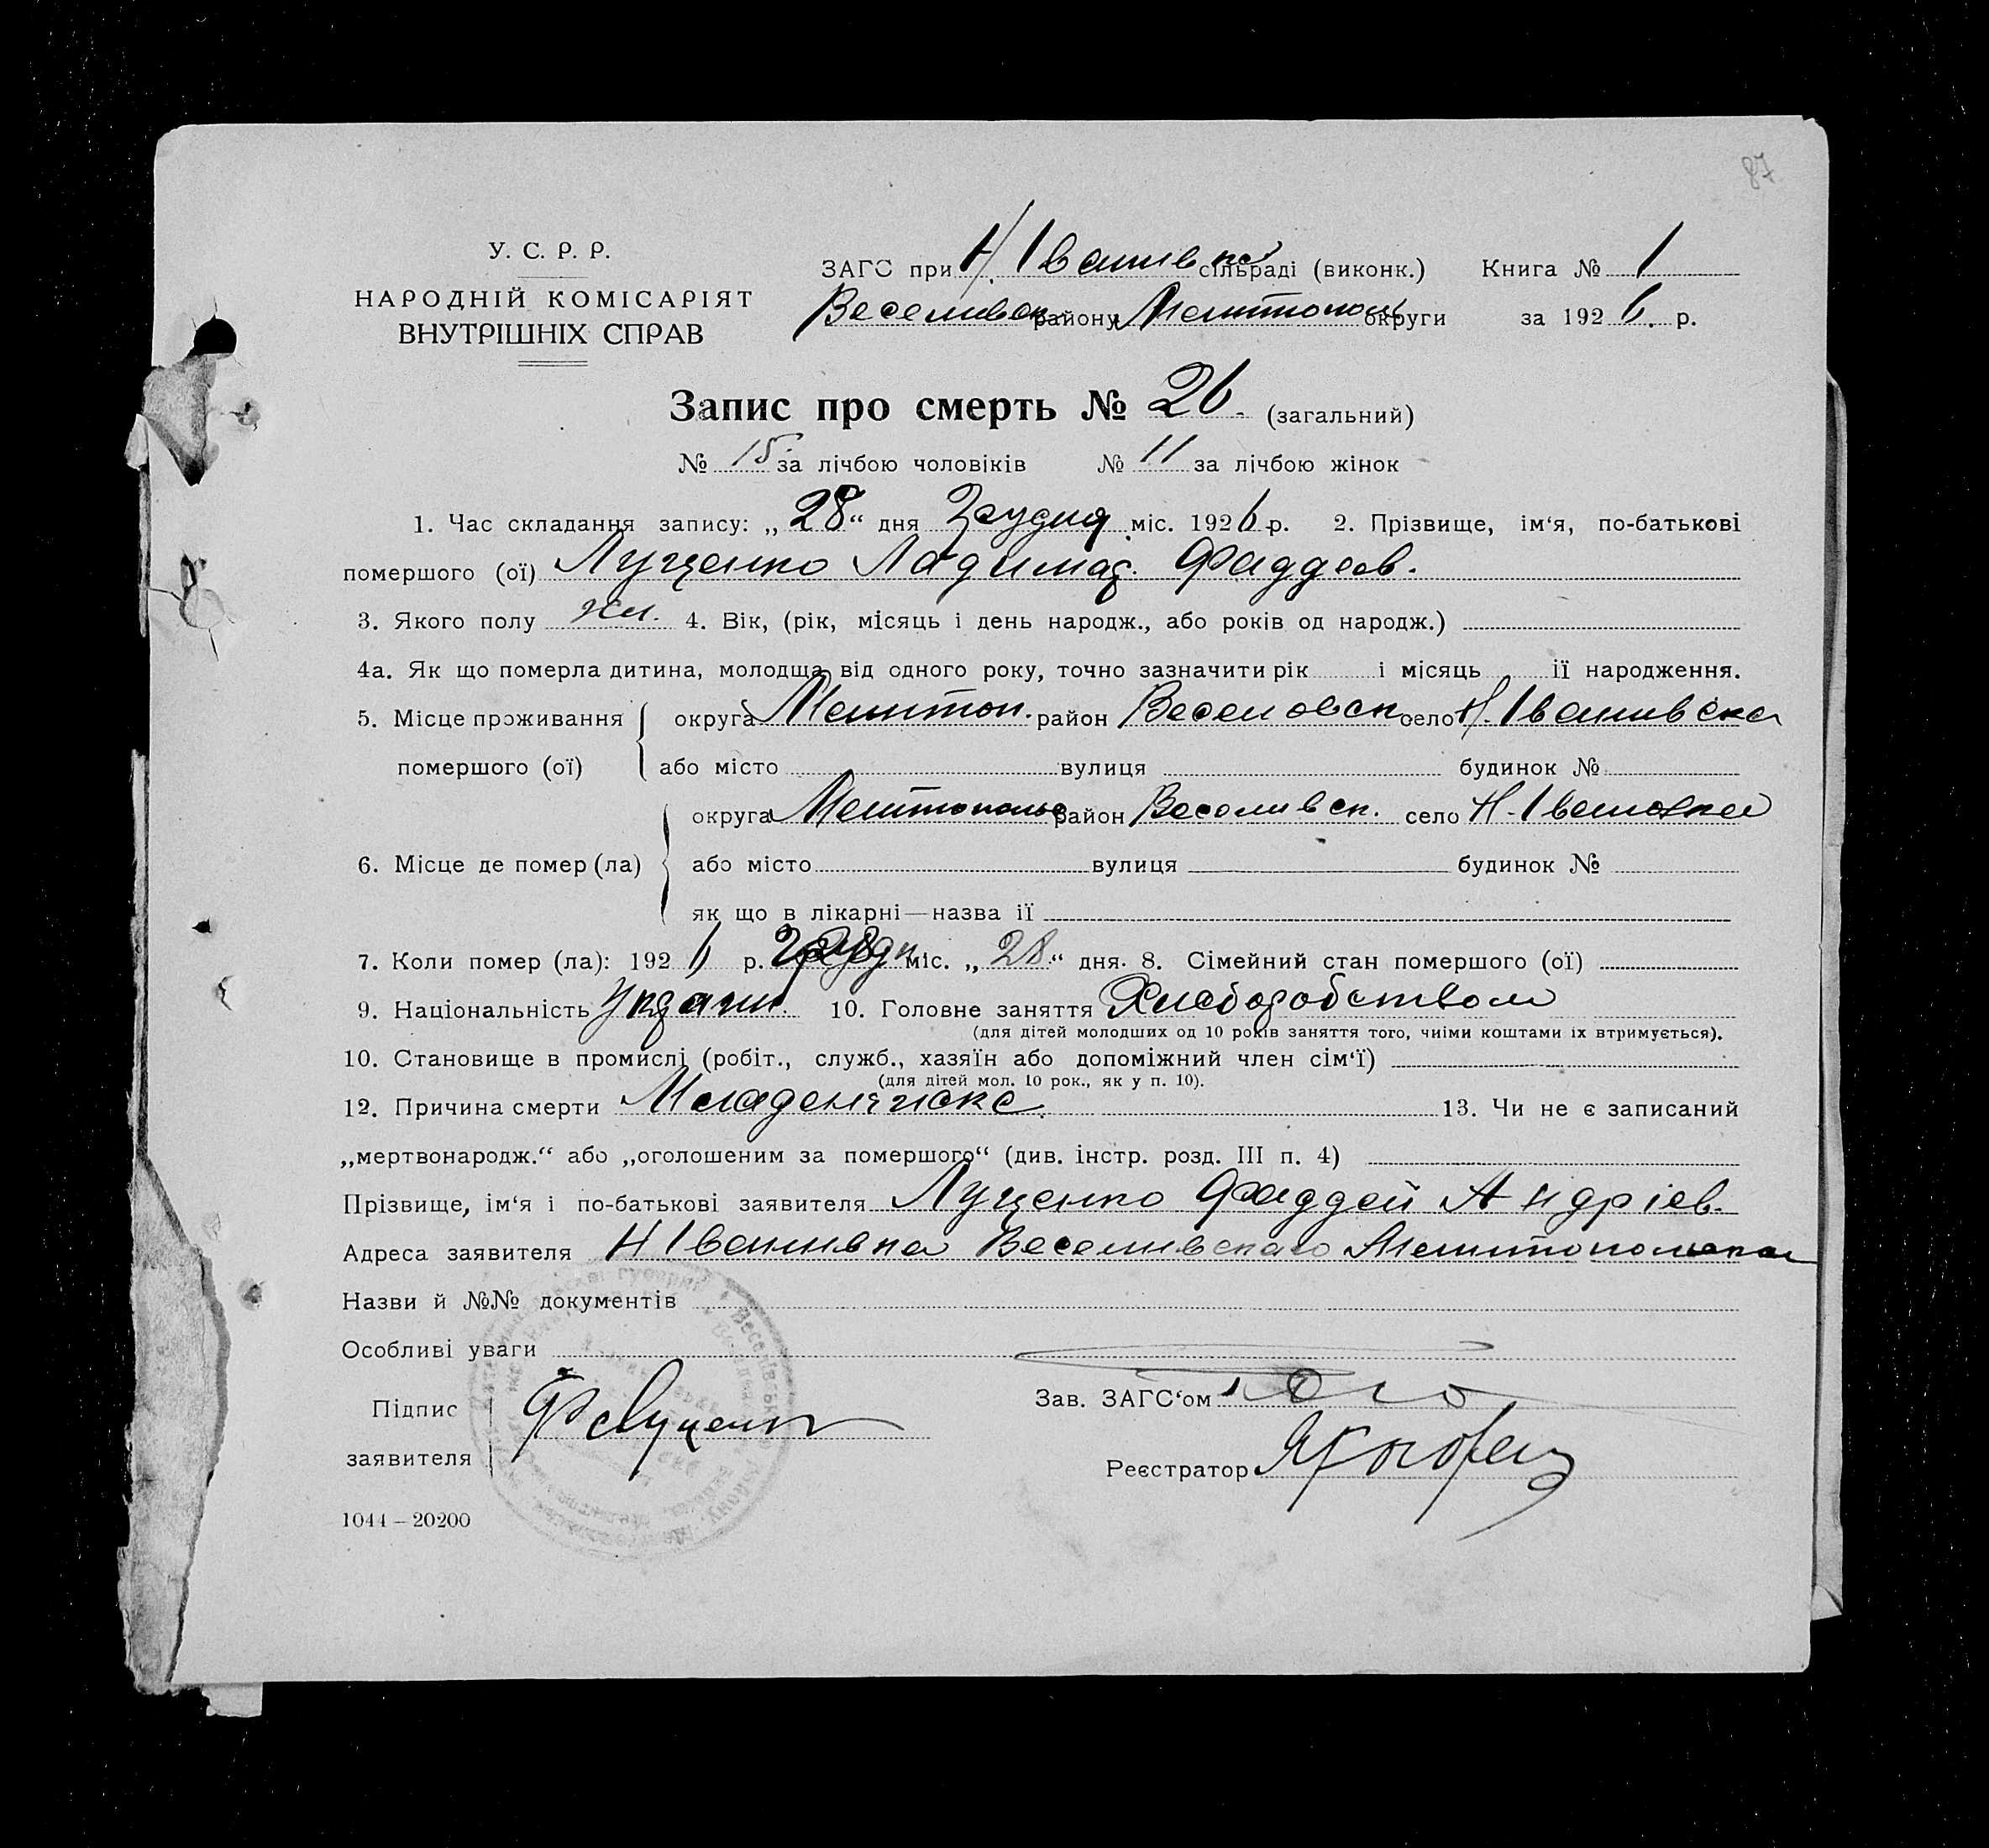 87
У. С. Р. Р.
НАРОДНІЙ КОМІСАРІЯТ
ВНУТРІШНІХ СПРАВ
ЗАГС при Н. Іванивка сільраді (виконк.) Книга № 1
Веселивск. району Мелитополь округи за 1926. р.
Запис про смерть № 26. (загальний)
№ 15. за лічбою чоловіків № 11 за лічбою жінок
1. Час складання запису: „28“ дня Грудня міс. 1926 р. 2. Прізвище, ім‘я, по-батькові
помершого (ої) Луценко Ладимар. Фаддеев.
3. Якого полу 4. Вік, (рік, місяць і день народж., або років од народж.)
4а. Як що померла дитина, молодща від одного року, точно зазначити рік і місяць ії народження.
5. Місце проживання помершого (ої) округа Мелитоп. район Веселовск село Н. Іванивска
або місто вулиця будинок №
6. Місце де помер (ла) округа Мелитополь район Веселивск. село Н. Івановка
або місто вулиця будинок №
як що в лікарні—назва ії
7. Коли помер (ла): 1926 р. грудн міс. „28“ дня. 8. Сімейний стан помершого (ої)
9. Національність Украин. 10. Головне заняття Хлеборобством
(для дітей молодших од 10 років заняття того, чиїми коштами їх втримується).
10. Становище в промислі (робіт., служб., хазяїн або допоміжний член сім‘ї)
(для дітей мол. 10 рок., як у п. 10).
12. Причина смерти 13. Чи не є записаний
„мертвонародж.“ або „оголошеним за помершого“ (див. інстр. розд. III п. 4)
Прізвище, ім‘я і по-батькові заявителя Луценко Фаддей Андріев.
Адреса заявителя Н Іванивка Веселивскаго Мелитопольска
Назви й №№ документів
Особливі уваги
Підпис заявителя Ф Луценко
Зав. ЗАГС‘ом
Реєстратор
1044 – 20200